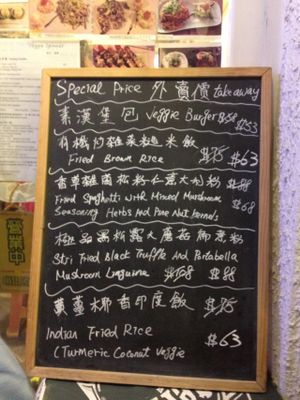 Special Price 外賣價 takeaway
素漢堡包 Veggie Burger $58 $53
有機竹雜菜糙米飯
Fried Brown Rice $75 $63
香草雜菌松籽仁意大利粉 $88
Fried Spaghetti with Mixed Mushroom $68
Seasoning Herbs And Pine Nut Kernels
極品黑松露大蘑菇扁意粉
Stri Fried Black Truffle And Portabella
Mushroom Linguine $108 $88
黃薑椰香印度飯 $75
Indian Fried Rice $63
(Turmeric Coconut Veggie
營業中